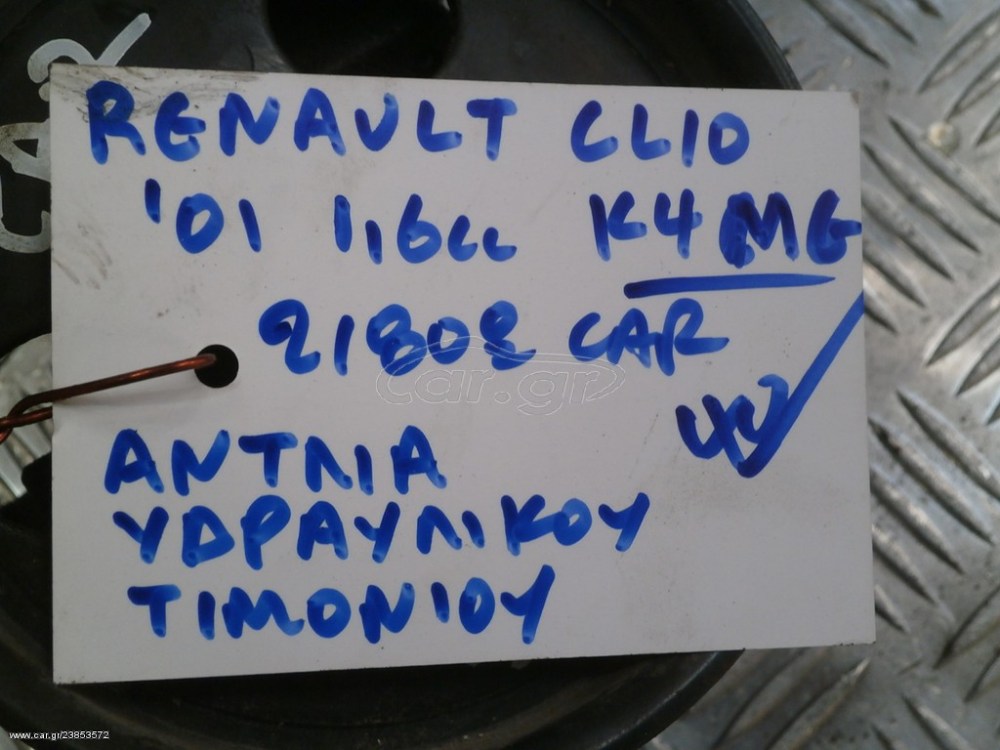 RENAULT CLIO
'01 1,6cc K4MG
21808 CAR
ΑΝΤΛΙΑ
ΥΔΡΑΥΛΙΚΟΥ
ΤΙΜΟΝΙΟΥ
car.gr
www.car.gr/23853572